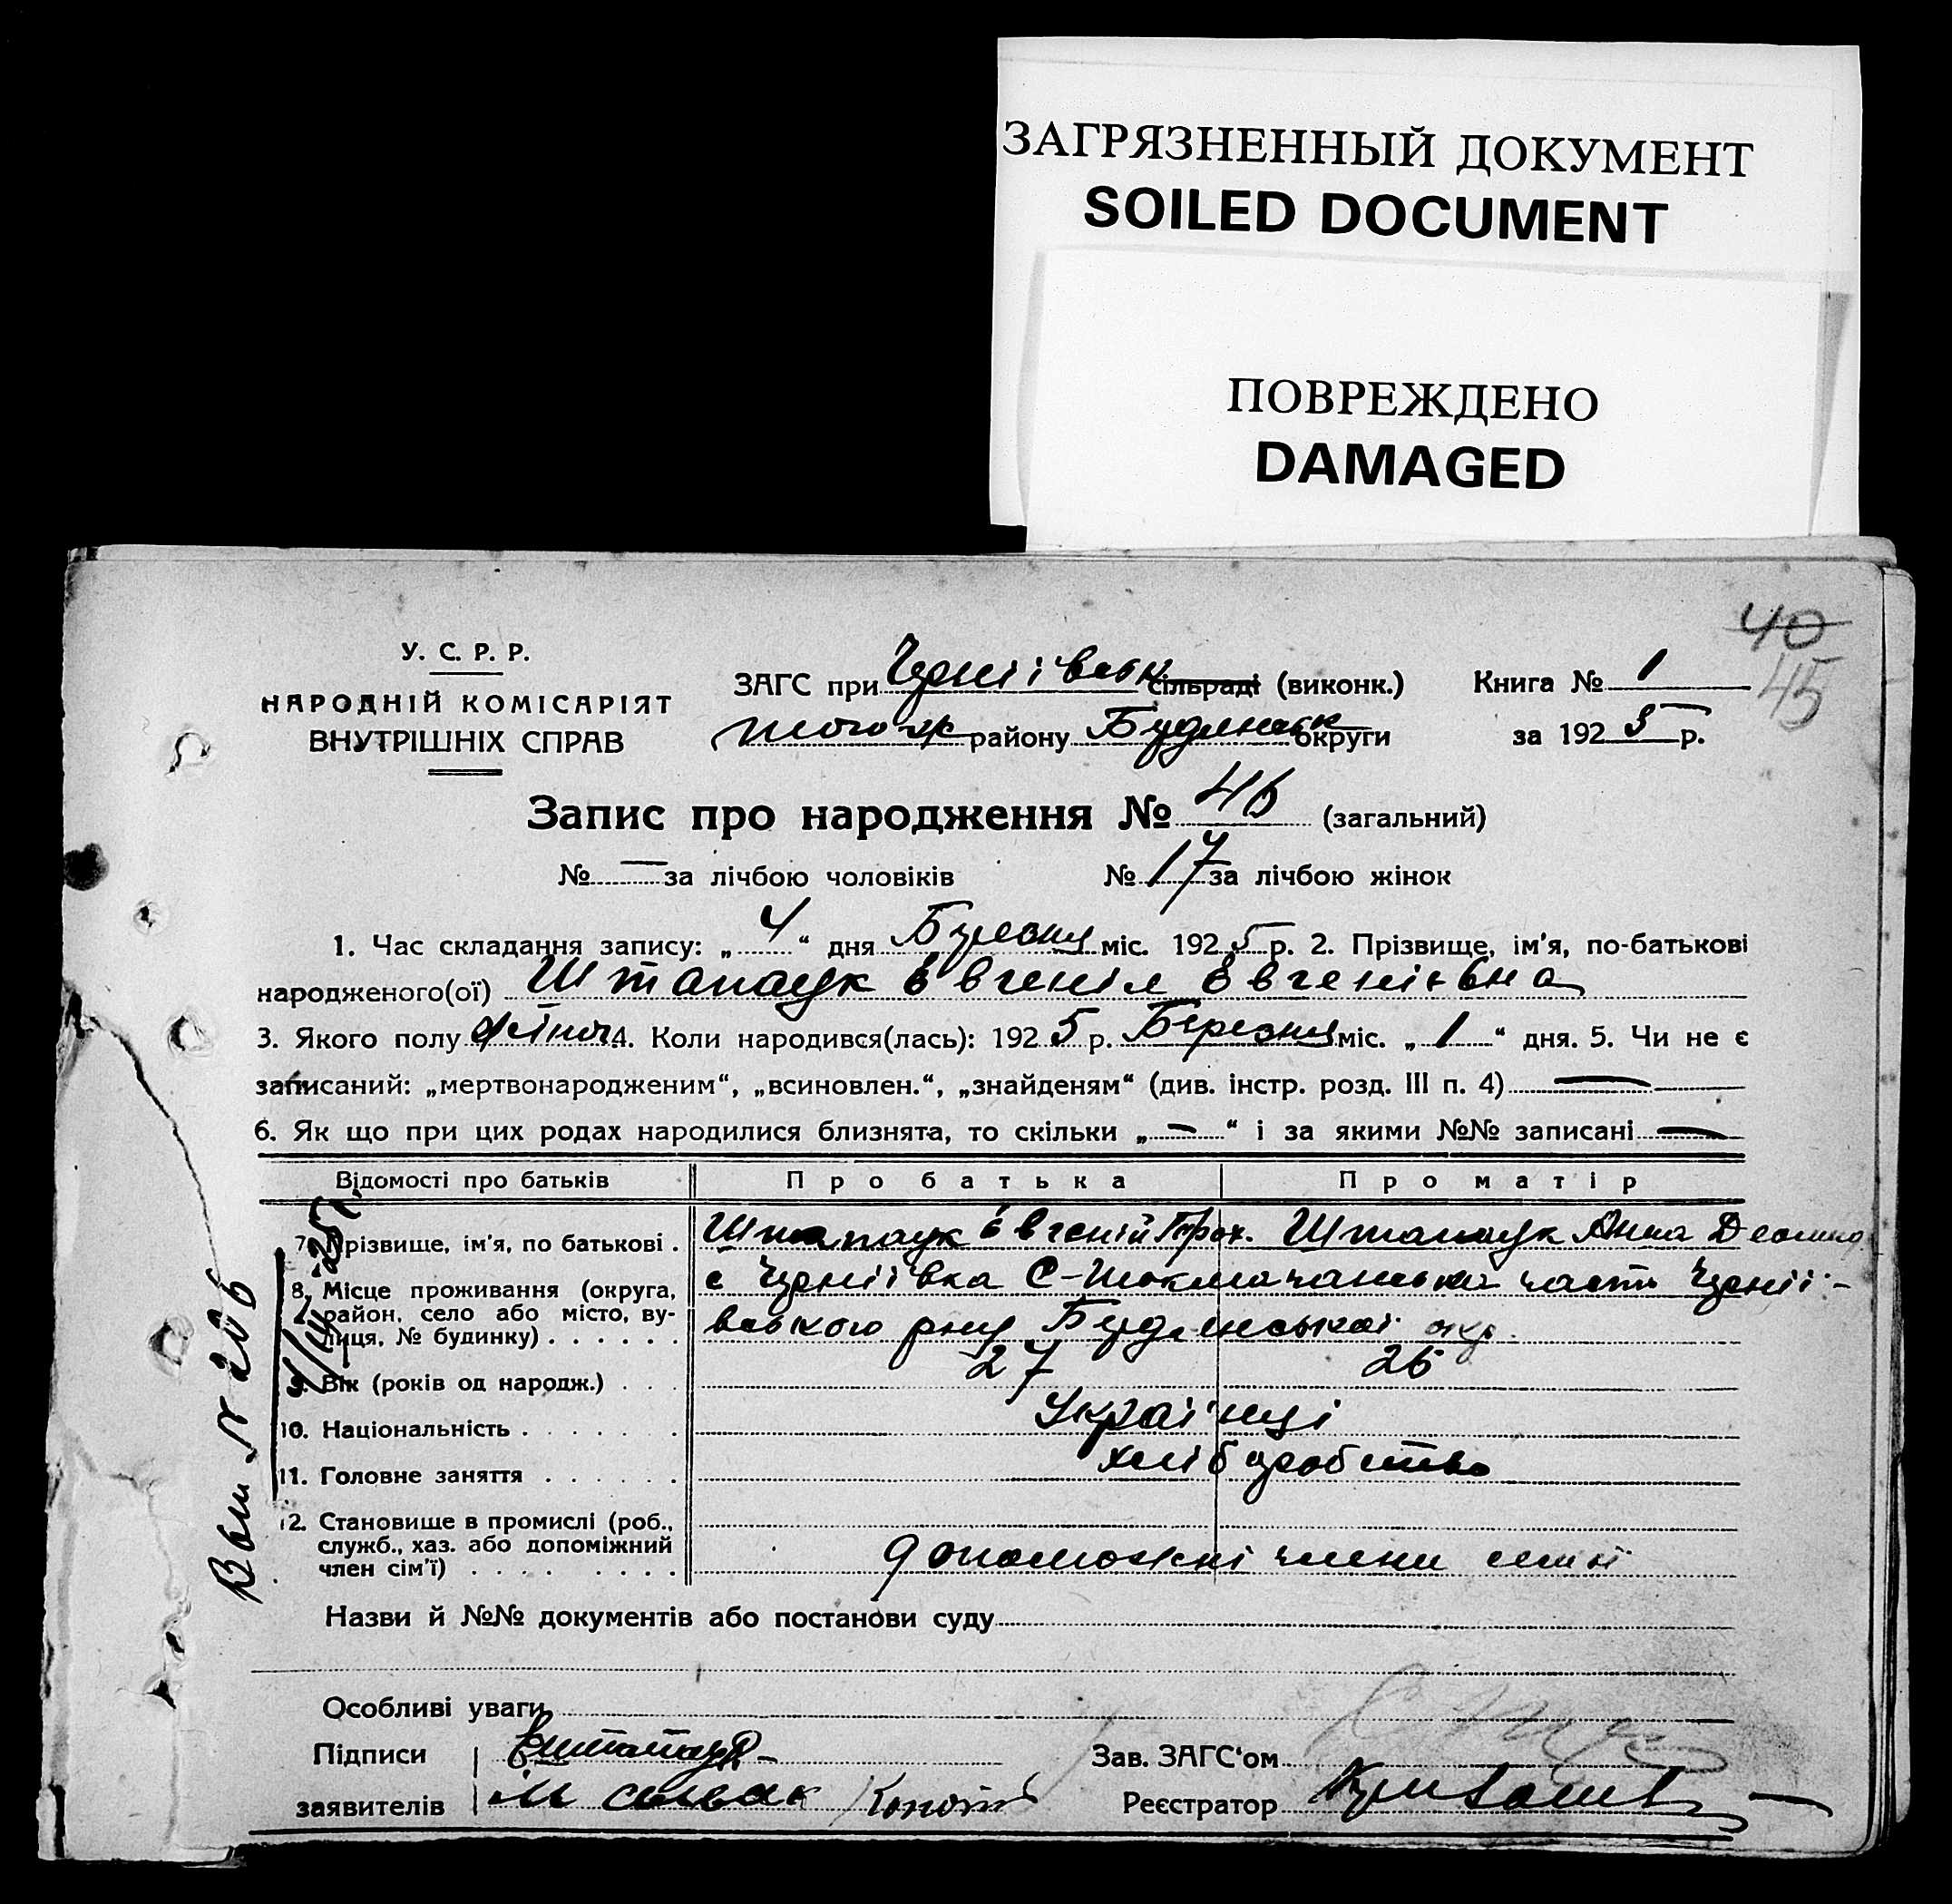 ЗАГРЯЗНЕННЫЙ ДОКУМЕНТ
SOILED DOCUMENT
ПОВРЕЖДЕНО
DAMAGED
40
45
У. С. Р. Р.
НАРОДНІЙ КОМІСАРІЯТ
ВНУТРІШНІХ СПРАВ
ЗАГС при сільраді (виконк.)
того ж району округи
Книга № 1
за 192 5 р.
Запис про народження № 46 (загальний)
№ — за лічбою чоловіків № 17 за лічбою жінок
1. Час складання запису: „ 4 “ дня Березня міс. 192 5 р. 2. Прізвище, ім'я, по-батькові
народженого(ої) Євгенія Євгенієвна
3. Якого полу жіноч 4. Коли народився(лась): 192 5 р. Березня міс. „ 1 “ дня. 5. Чи не є
записаний: „мертвонародженим“, „всиновлен.“, „знайденям“ (див. інстр. розд. III п. 4) —
6. Як що при цих родах народилися близнята, то скільки „ — “ і за якими №№ записані —
Відомості про батьків Про батька Про матір
7. Прізвище, ім'я, по батькові . Євгеній Прох. Анна
8. Місце проживання (округа, район, село або місто, вулиця, № будинку) . . . . . . с Чернії вка часть Черніі-
вського рну окр.
9. Вік (років од народж.) . . . 27 26
10. Національність . . . . . . Українці
11. Головне заняття . . . . . . хліборобство
12. Становище в промислі (роб., служб., хаз. або допоміжний член сім'ї) . . . . . . . . допоможні члени
Назви й №№ документів або постанови суду
Особливі уваги
Підписи
заявителів
Зав. ЗАГС'ом
Реєстратор
№ 206